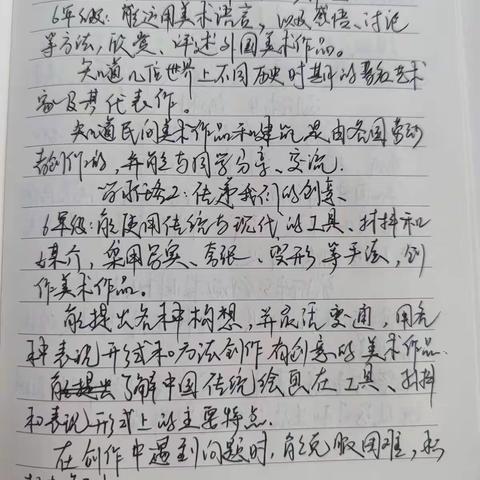 6年级：能运用美术语言，以及感悟、讨论
等方法，欣赏、评述外国美术作品。
知道几位世界上不同历史时期的著名艺术
家及其代表作。
知道民间美术作品和建筑是由各国劳动
者创作的，并能与同学分享、交流。
2：传递我们的创意、
6年级：能使用传统与现代的工具、材料和
媒介，采用写实、夸张、变形等手法，创
作美术作品。
能提出各种构想，并灵活变通，用各
种表现形式和方法创作有创意的美术作品.
能提出了解中国传统绘画在工具、材料
和表现形式上的主要特点.
在创作中遇到问题时，能克服困难，